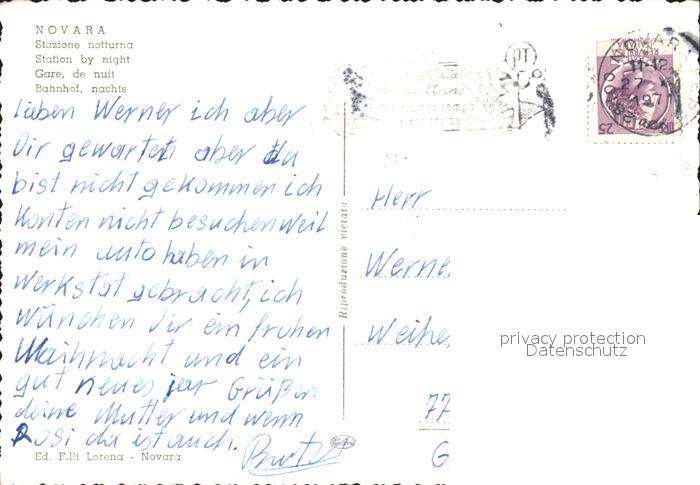 NOVARA
Stazione notturna
Station by night
Gare, de nuit
Bahnhof, nachts
lieben Werner ich aber
Dir gewartet aber da
bist nicht gekommen ich
konten nicht besuchen weil
mein auto haben in
werkstat gebracht, ich
wünchen dir ein frohen
Waihnacht und ein
gut neues jar Grüßen
deine Mutter und wenn
Rosi da ist auch.
Ed. F.lli Lorena - Novara
Riproduzione vietata
PT
NOVARA
11-12
25
Herr
Werne
Weihe
77
G
privacy protection
Datenschutz